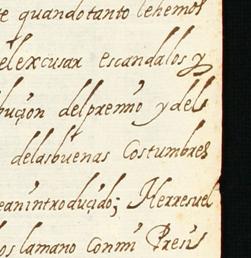 te quando tanto lehemos
el excusar escandalos y
bución del premio y del
delas buenas Costumbres
ean introducido; Herresuel
os lamano con mi Presi